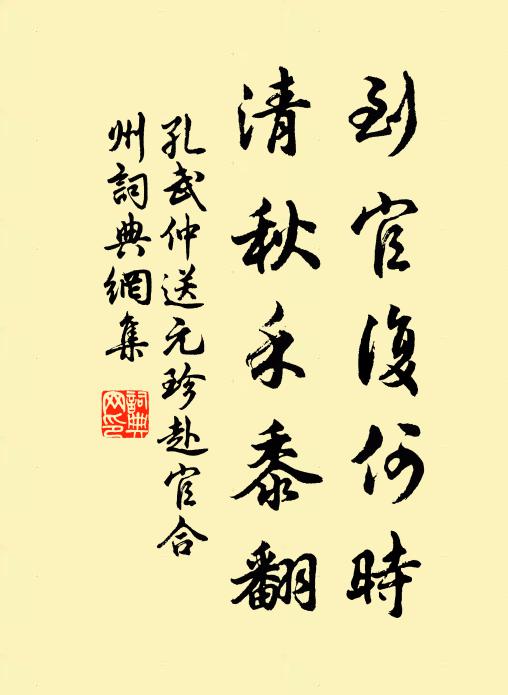 到官復何時
清秋禾黍翻
孔武仲送元珍赴官合
州詞典網集
詞典網印